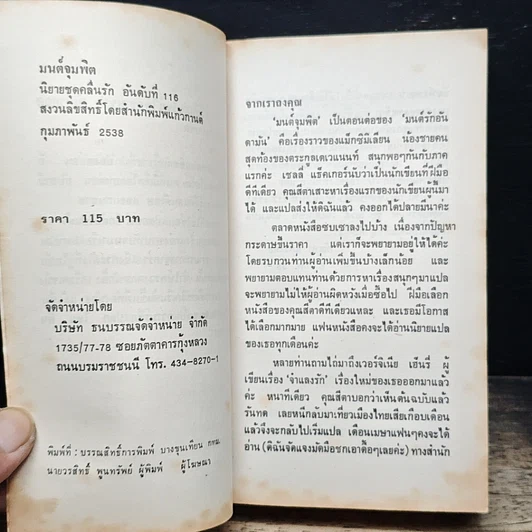 มนต์จุมพิต
นิยายชุดคลื่นรัก อันดับที่ 116
สงวนลิขสิทธิ์โดยสำนักพิมพ์แก้วกานต์
กุมภาพันธ์ 2538
ราคา 115 บาท
จัดจำหน่ายโดย
บริษัท ธนบรรณจัดจำหน่าย จำกัด
1735/77-78 ซอยภัตตาคารกุ้งหลวง
ถนนบรมราชชนนี โทร. 434-8270-1
พิมพ์ที่ : บรรณสิทธิ์การพิมพ์ บางขุนเทียน กทม.
นายวรสิทธิ์ พูนทรัพย์ ผู้พิมพ์ ผู้โฆษณา
จากเราถงคุณ
'มนต์จุมพิต' เป็นตอนต่อของ 'มนต์รักอัน
ดามัน' คือเรื่องราวของแม็กซิมิเลียน น้องชายคน
สุดท้องของตระกูลเดเวแนนท์ สนุกพอๆกันกับภาค
แรกค่ะ เชลลี่ แธคเกอร์นับว่าเป็นนักเขียนที่ฝีมือ
ดีทีเดียว คุณสีตาเสาะหาเรื่องแรกของนักเขียนผู้นี้มา
ได้ และแปลส่งให้ดิฉันแล้ว คงออกได้ปลายมีนาค่ะ
ตลาดหนังสือซบเซาลงไปบ้าง เนื่องจากปัญหา
กระดาษขึ้นราคา แต่เราก็จะพยายามอยู่ให้ได้ค่ะ
โดยรบกวนท่านผู้อ่านเพิ่มขึ้นบ้างเล็กน้อย และ
พยายามตอบแทนท่านด้วยการหาเรื่องสนุกๆมาแปล
จะพยายามไม่ให้ผู้อ่านผิดหวังเมื่อซื้อไป ฝีมือเลือก
หนังสือของคุณสีตาดีทีเดียวแหละ และเธอมีโอกาส
ได้เลือกมากมาย แฟนหนังสือคงจะได้อ่านนิยายแปล
ของเธอทุกเดือนค่ะ
หลายท่านถามไถ่มาถึงเวอร์จิเนีย เฮ็นรี่ ผู้
เขียนเรื่อง 'จำแลงรัก' เรื่องใหม่ของเธอออกมาแล้ว
ค่ะ หนาทีเดียว คุณสีตาบอกว่าเห็นต้นฉบับแล้ว
รันทด เลยหนีกลับมาเที่ยวเมืองไทยเสียเกือบเดือน
แล้วจึงจะกลับไปเริ่มแปล เดือนเมษาแฟนๆคงจะได้
อ่าน (ดิฉันจัดแจงมัดมือชกเอาดื้อๆเลยค่ะ) ทางสำนัก